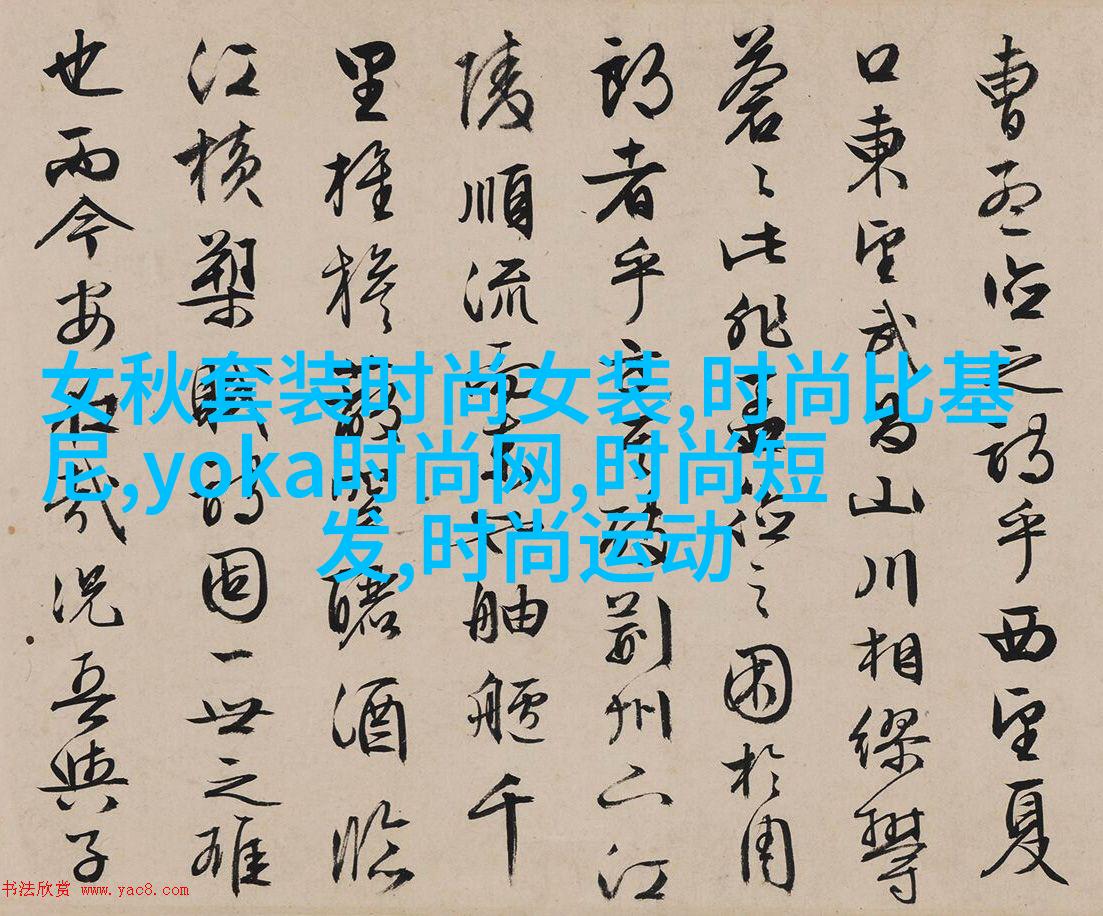 曹孟德之詩乎西望夏
口東望武昌山川相繆鬱
蒼〻此非孟德之困於周
郎者乎方其破荊州下江
陵順流而東也舳艫千
里旌旗蔽空釃酒臨
江橫槊賦詩固一世之雄
也而今安在哉況吾與子
女秋套装时尚女装,时尚比基
尼,yoka时尚网,时尚短
发,时尚运动
书法欣赏 www.yac8.com